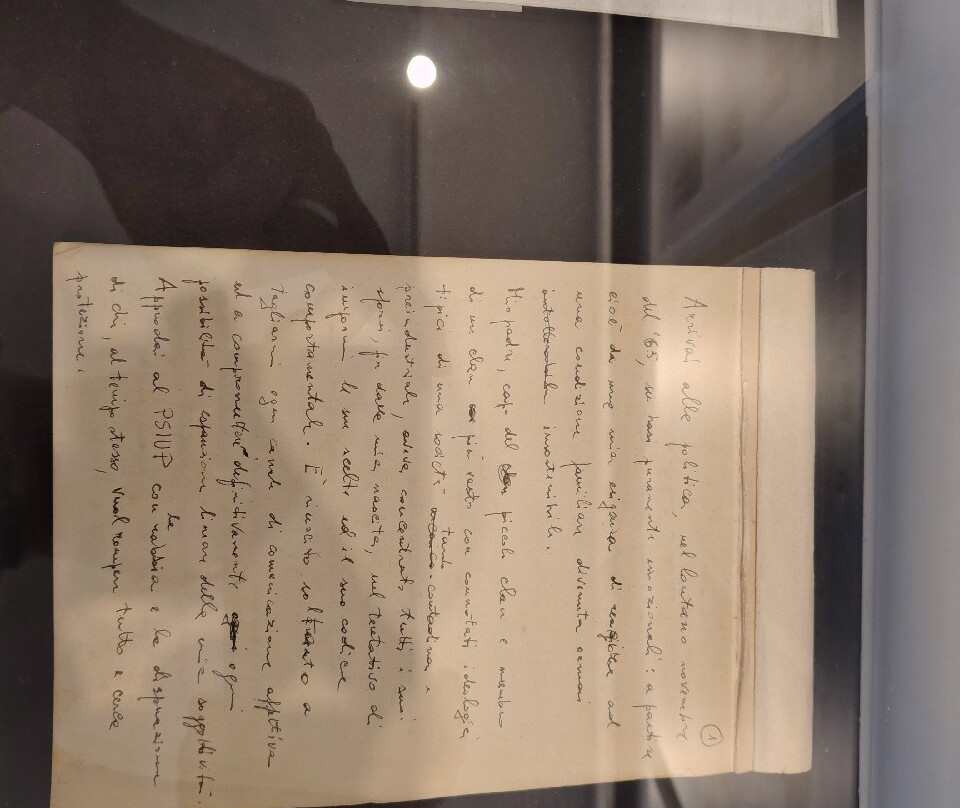 1
Arrivai alla politica, nel lontano novembre
del '65, su basi puramente emozionali: a partire
cioè da una mia esigenza di reagire ad
una condizione familiare divenuta ormai
insostenibile.
Mio padre, capo del piccolo clan e membro
di un clan più vasto con connotati ideologici
tipici di una società tardo-contadina e
preindustriale, aveva concentrato tutti i suoi
sforzi, fin dalla mia nascita, nel tentativo di
impormi le sue scelte ed il suo codice
comportamentale. È riuscito soltanto a
tagliarmi ogni canale di comunicazione affettiva
ed a compromettere definitivamente ogni
possibilità di espansione lineare della mia soggettività.
Approdai al PSIUP con la rabbia e la disperazione
di chi, al tempo stesso, vuol rompere tutto e cerca
protezione.